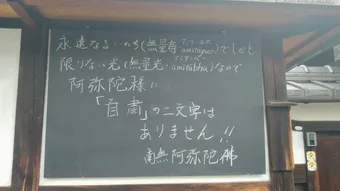 永遠なるいのち(無量寿 アミターユス amitāyus)でしかも
限りない光(無量光 アミターバー amitābha)なので
阿弥陀様に
「自粛」の二文字は
ありません!!
南無阿弥陀佛